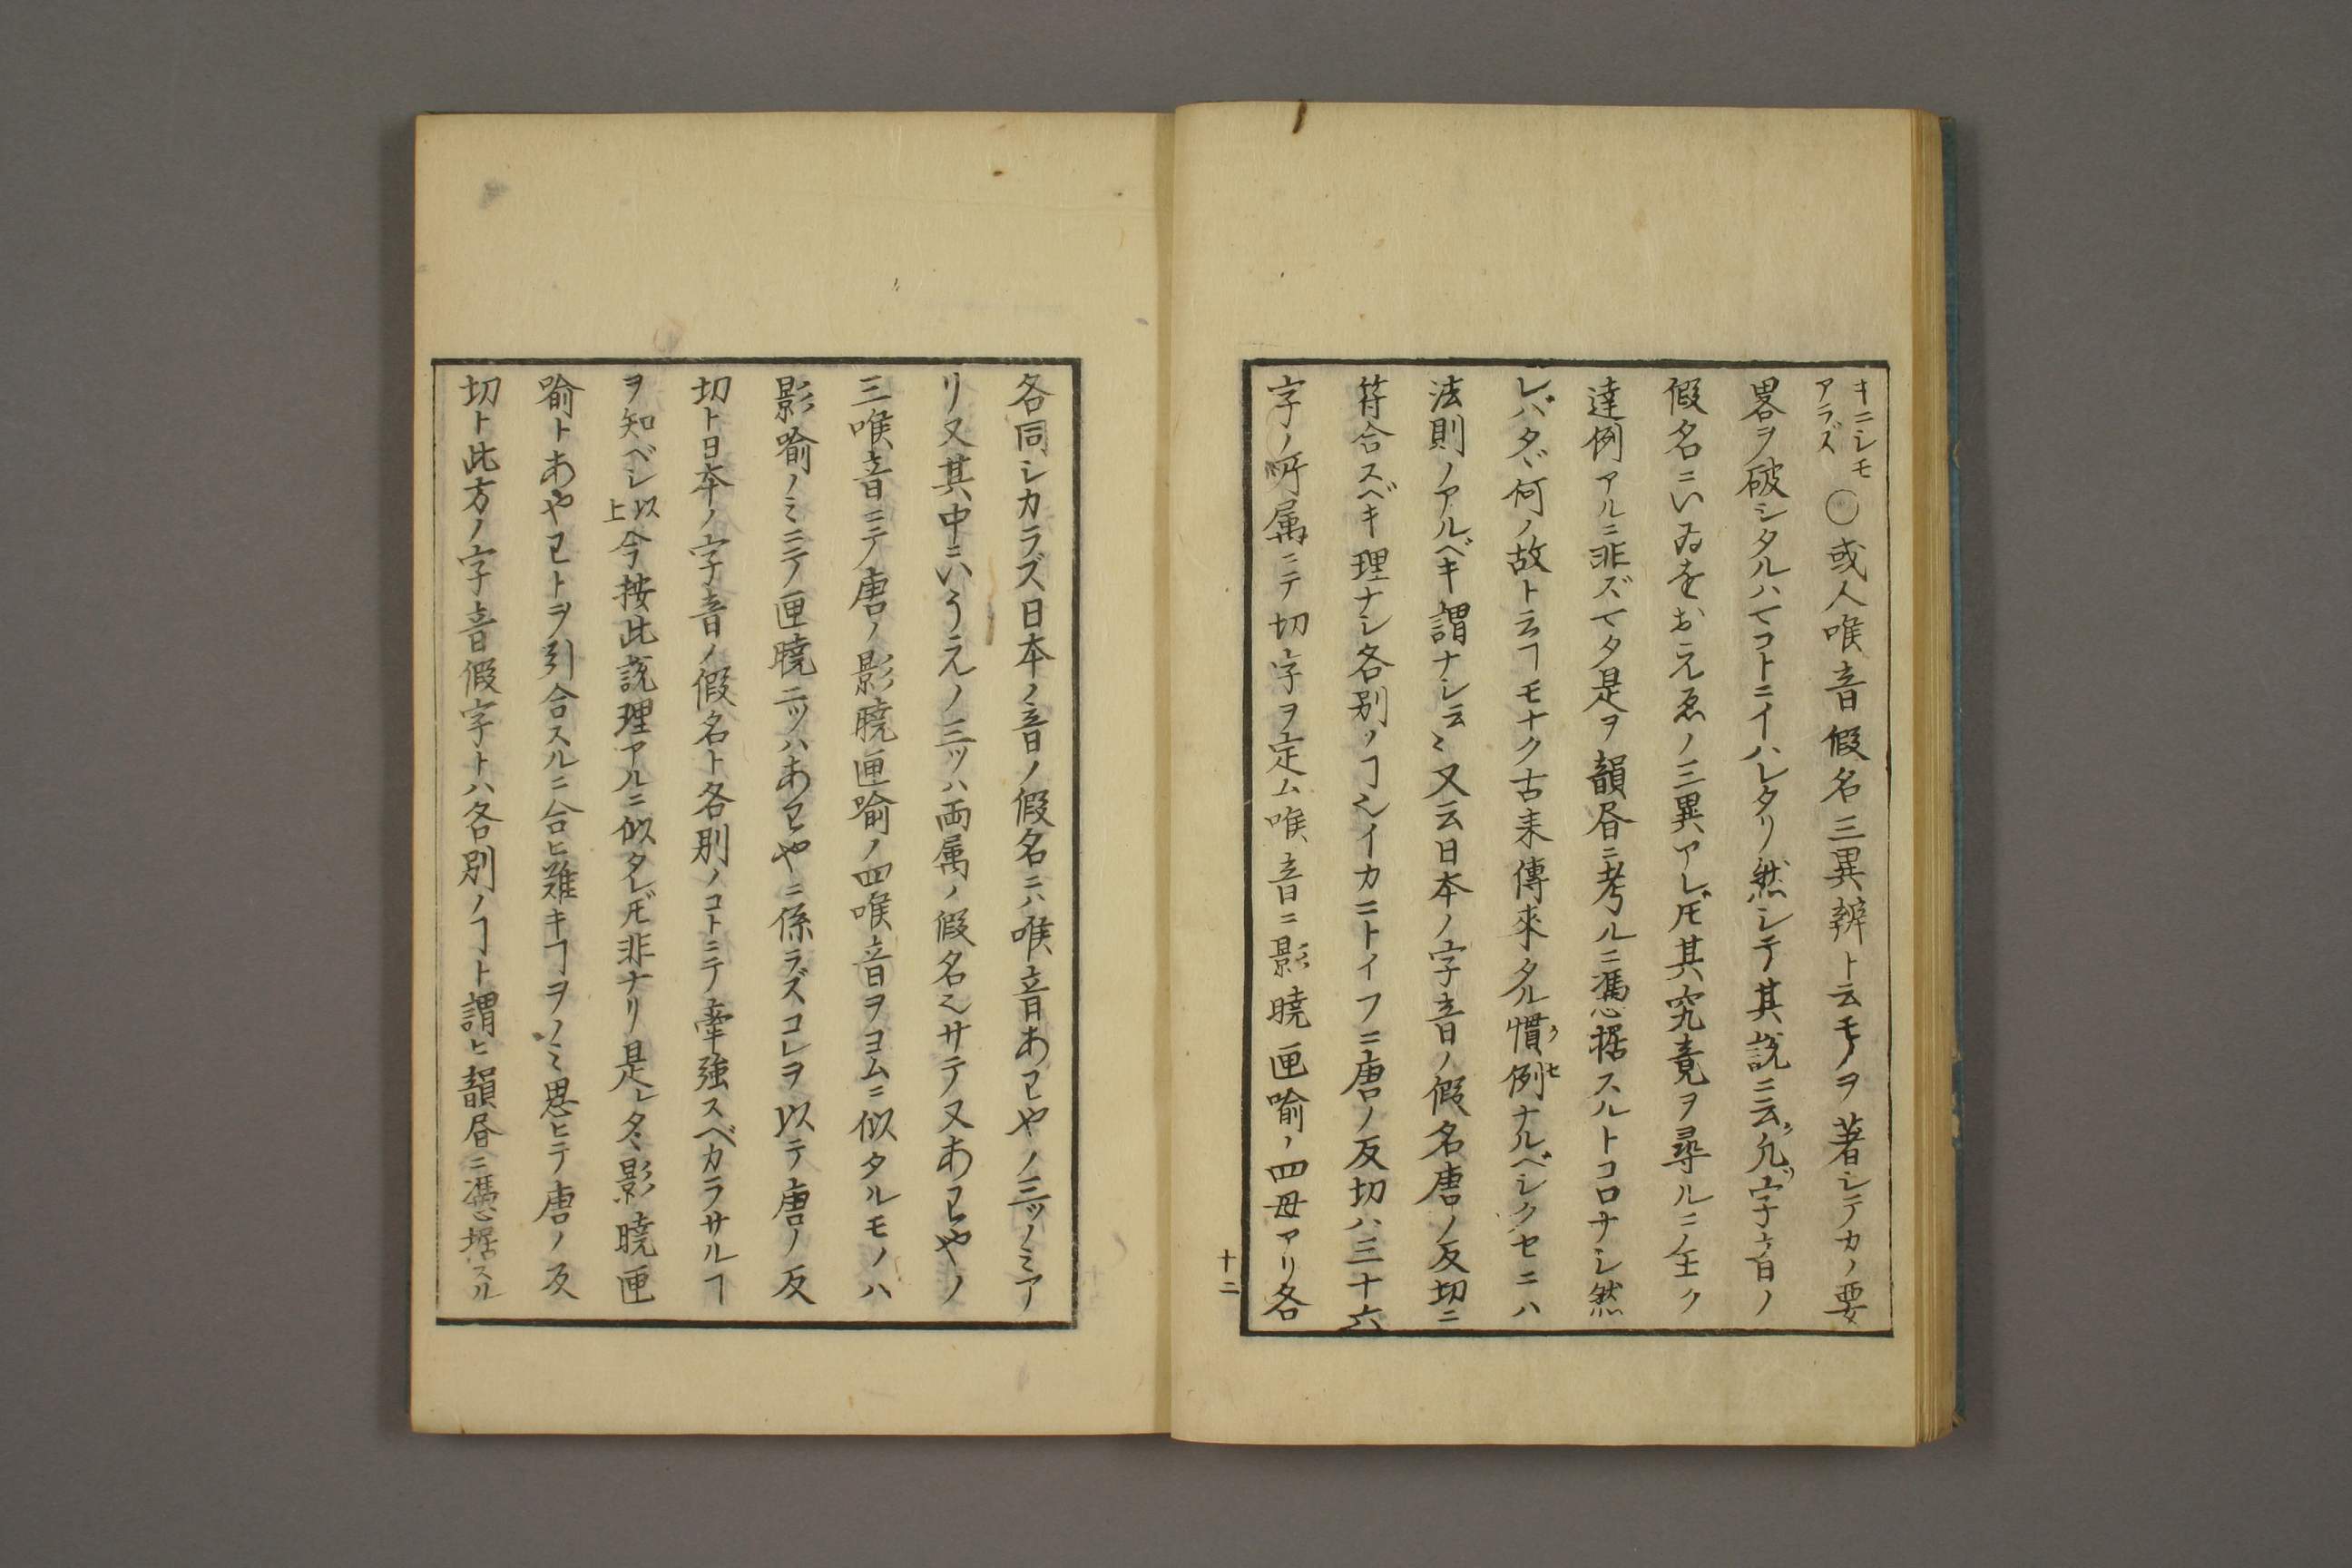 キニシモアラズ○或人喉音假名三異辨ト云モノヲ著シテカノ要
畧ヲ破シタルハヿコトニイハレタリ然シテ其説ニ云ク凡ソ字音ノ
假名ニいゐをおえゑノ三異アレドモ其究竟ヲ尋ルニ全ク
達例アルニ非ズマタ是ヲ韻昏ニ考ルニ馮据スルトコロナシ然
レバタヾ何ノ故ト云ヿモナク古来傳來タル慣例クセナルベシクセニハ
法則ノアルベキ謂ナシ云〻又云日本ノ字音ノ假名唐ノ反切ニ
符合スベキ理ナシ各別ノヿ也イカニトイフニ唐ノ反切ハ三十六
字ノ所属ニテ切字ヲ定ム喉音ニ影曉匣喩ノ四母アリ各
十二
各同シカラズ日本ノ音ノ假名ニハ喉音あわやノ三ッノミア
リ又其中ニいうえノ三ッハ両属ノ假名也サテ又あわやノ
三喉音ニテ唐ノ影曉匣喩ノ四喉音ヲヨムニ似タルモノハ
影喩ノミニテ匣曉ニッハあわやニ係ラズコレヲ以テ唐ノ反
切ト日本ノ字音ノ假名ト各別ノコトニテ牽強スベカラサルヿ
ヲ知ベシ以上今按此説理アルニ似タレドモ非ナリ是レタヾ影曉匣
喩トあやわトヲ引合スルニ合ヒ難キヿヲノミ思ヒテ唐ノ反
切ト此方ノ字音假字トハ各別ノヿト謂ヒ韻昏ニ馮据スル